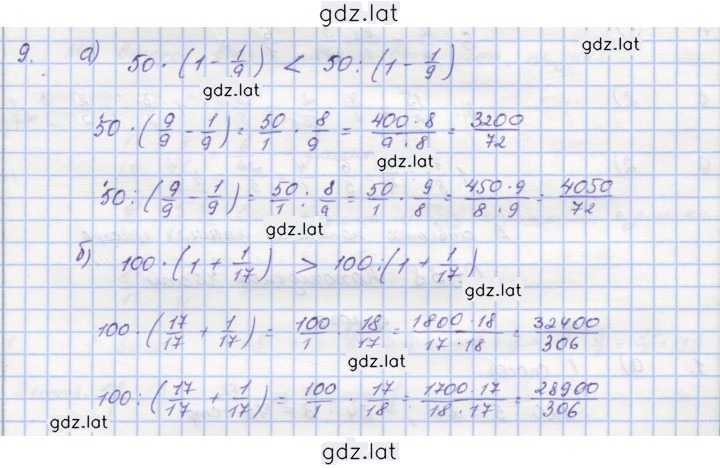 gdz.lat
gdz.lat
9. а) 50 · (1 - 1/9) < 50 : (1 - 1/9)
gdz.lat
50 · (9/9 - 1/9) = 50/1 · 8/9 = 400·8/9·8 = 3200/72
gdz.lat
50 : (9/9 - 1/9) = 50/1 : 8/9 = 50/1 · 9/8 = 450·9/8·9 = 4050/72
gdz.lat
б) 100 · (1 + 1/17) > 100 : (1 + 1/17)
gdz.lat
100 · (17/17 + 1/17) = 100/1 · 18/17 = 1800·18/17·18 = 32400/306
gdz.lat
100 : (17/17 + 1/17) = 100/1 · 17/18 = 1700·17/18·17 = 28900/306
gdz.lat
gdz.lat